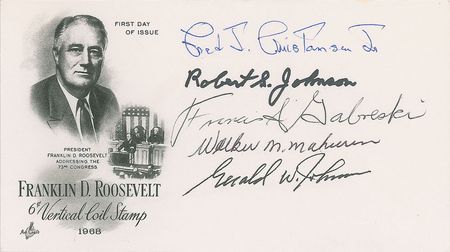 FIRST DAY
OF ISSUE
Fred J. Christensen Jr
Robert S. Johnson
Francis S. Gabreski
Walker M. Mahurin
Gerald W. Johnson
PRESIDENT
FRANKLIN D. ROOSEVELT
ADDRESSING THE
73RD CONGRESS
FRANKLIN D. ROOSEVELT
6¢ Vertical Coil Stamp
1968
Art Craft